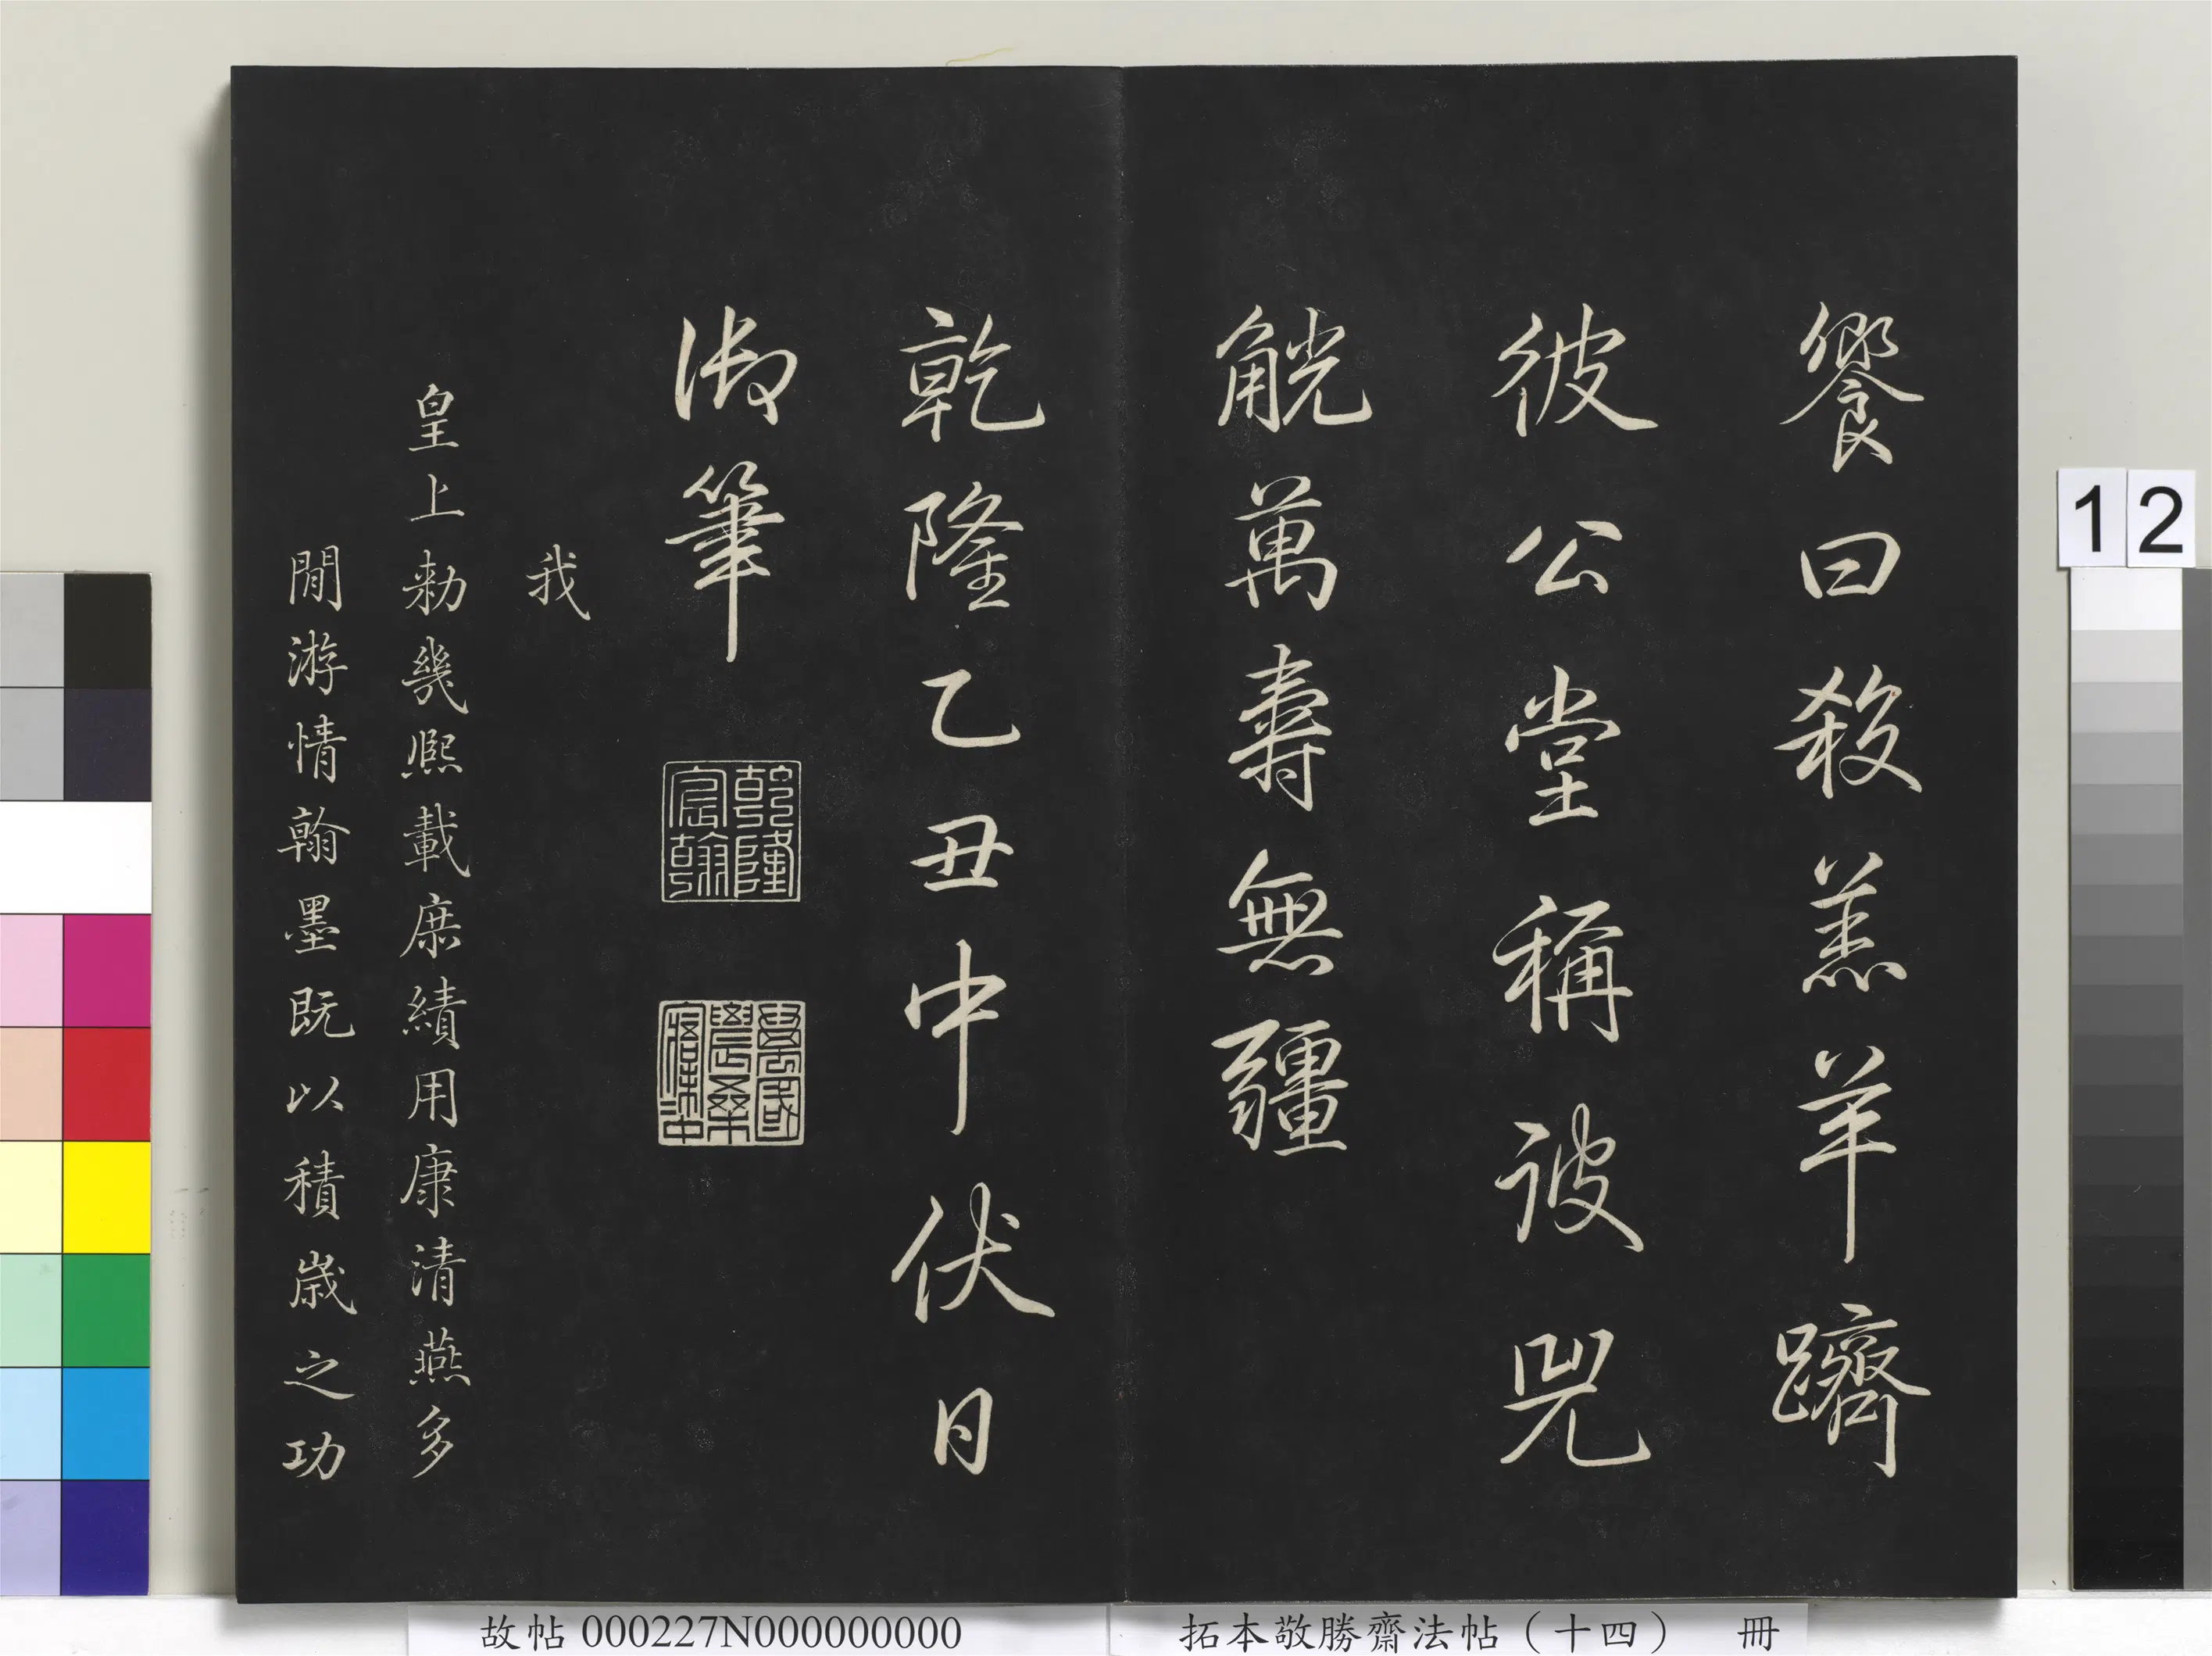 饗曰殺羔羊躋
彼公堂稱彼兕
觥萬壽無疆
乾隆乙丑中伏日
御筆
乾隆宸翰
萬國農桑寤寐中
我
皇上勑幾熙載庶績用康清燕多
閒游情翰墨既以積歲之功
12
故帖 000227N000000000
拓本敬勝齋法帖（十四） 冊